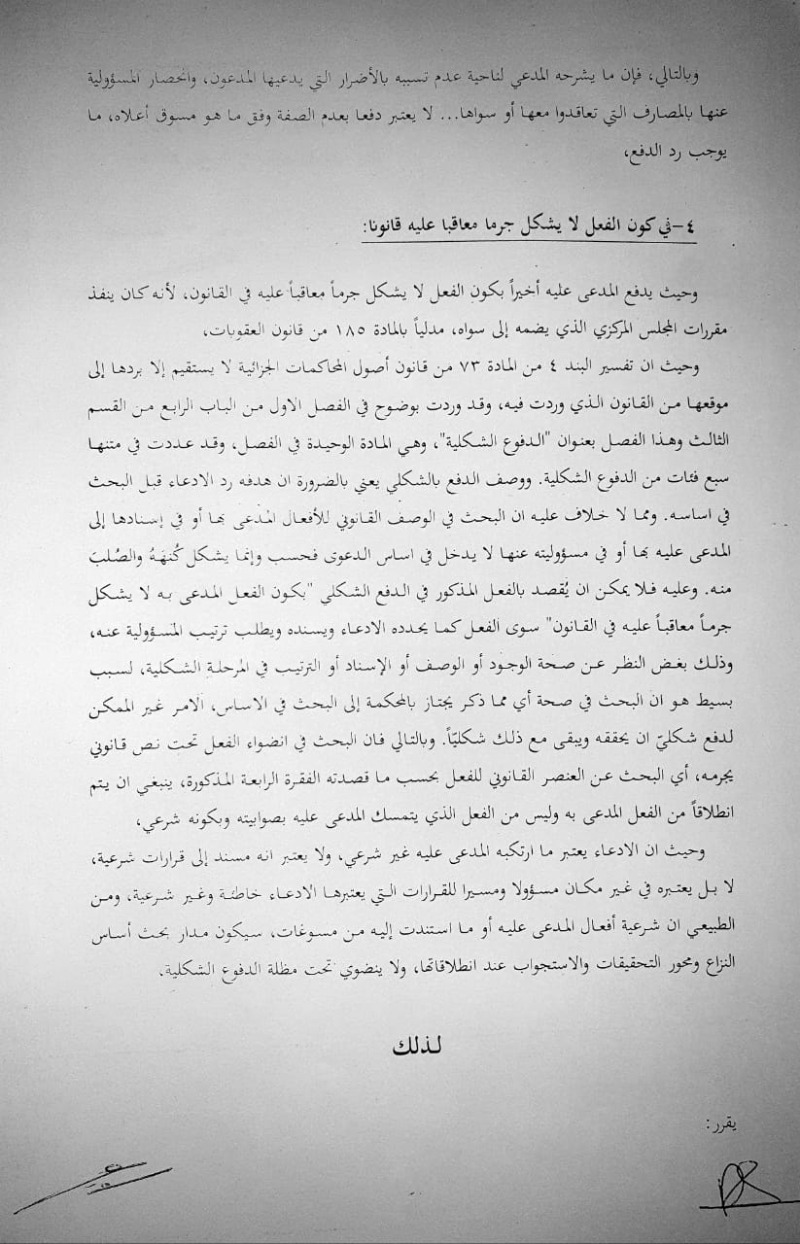 وبالتالي، فإن ما يشرحه المدعي لناحية عدم تسببه بالأضرار التي يدعيها المدعون، وانحصار المسؤولية
عنها بالمصارف التي تعاقدوا معها أو سواها... لا يعتبر دفعا بعدم الصفة وفق ما هو مسوق أعلاه، ما
يوجب رد الدفع،
٤-في كون الفعل لا يشكل جرما معاقبا عليه قانونا:
وحيث يدفع المدعى عليه أخيراً بكون الفعل لا يشكل جرماً معاقباً عليه في القانون، لأنه كان ينفذ
مقررات المجلس المركزي الذي يضمه إلى سواه، مدلياً بالمادة ١٨٥ من قانون العقوبات،
وحيث ان تفسير البند ٤ من المادة ٧٣ من قانون أصول المحاكمات الجزائية لا يستقيم إلا بردها إلى
موقعها من القانون الذي وردت فيه، وقد وردت بوضوح في الفصل الاول من الباب الرابع من القسم
الثالث وهذا الفصل بعنوان "الدفوع الشكلية"، وهي المادة الوحيدة في الفصل، وقد عددت في متنها
سبع فئات من الدفوع الشكلية. ووصف الدفع بالشكلي يعني بالضرورة ان هدفه رد الادعاء قبل البحث
في اساسه. ومما لا خلاف عليه ان البحث في الوصف القانوني للأفعال المدعى بها أو في إسنادها إلى
المدعى عليه بها أو في مسؤوليته عنها لا يدخل في اساس الدعوى فحسب وإنما يشكل كُنهَهُ والصُلبَ
منه. وعليه فلا يمكن ان يُقصد بالفعل المذكور في الدفع الشكلي "بكون الفعل المدعى به لا يشكل
جرماً معاقباً عليه في القانون" سوى الفعل كما يحدده الادعاء ويسنده ويطلب ترتيب المسؤولية عنه،
وذلك بغض النظر عن صحة الوجود أو الوصف أو الإسناد أو الترتيب في المرحلة الشكلية، لسبب
بسيط هو ان البحث في صحة أي مما ذكر يجتاز بالمحكمة إلى البحث في الاساس، الامر غير الممكن
لدفع شكليّ ان يحققه ويبقى مع ذلك شكليّاً. وبالتالي فان البحث في انضواء الفعل تحت نص قانوني
يجرمه، أي البحث عن العنصر القانوني للفعل بحسب ما قصدته الفقرة الرابعة المذكورة، ينبغي ان يتم
انطلاقاً من الفعل المدعى به وليس من الفعل الذي يتمسك المدعى عليه بصوابيته وبكونه شرعي،
وحيث ان الادعاء يعتبر ما ارتكبه المدعى عليه غير شرعي، ولا يعتبر انه مسند إلى قرارات شرعية،
لا بل يعتبره في غير مكان مسؤولا ومسيرا للقرارات التي يعتبرها الادعاء خاطئة وغير شرعية، ومن
الطبيعي ان شرعية أفعال المدعى عليه أو ما استندت إليه من مسوغات، سيكون مدار بحث أساس
النزاع ومحور التحقيقات والاستجواب عند انطلاقاتها، ولا ينضوي تحت مظلة الدفوع الشكلية.
لذلك
يقرر: